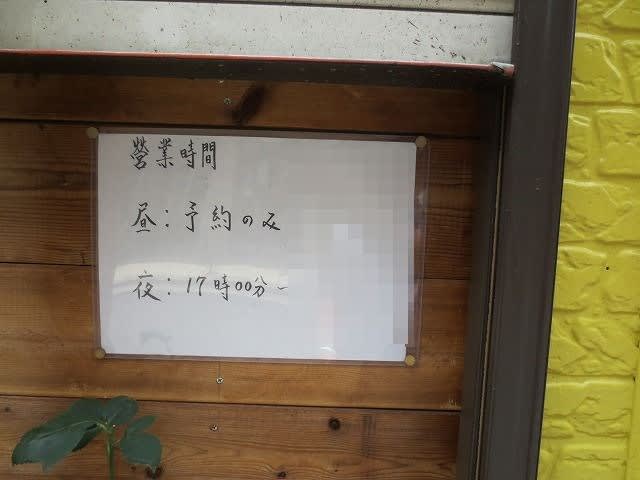 營業時間
昼：予約のみ
夜：17時00分〜